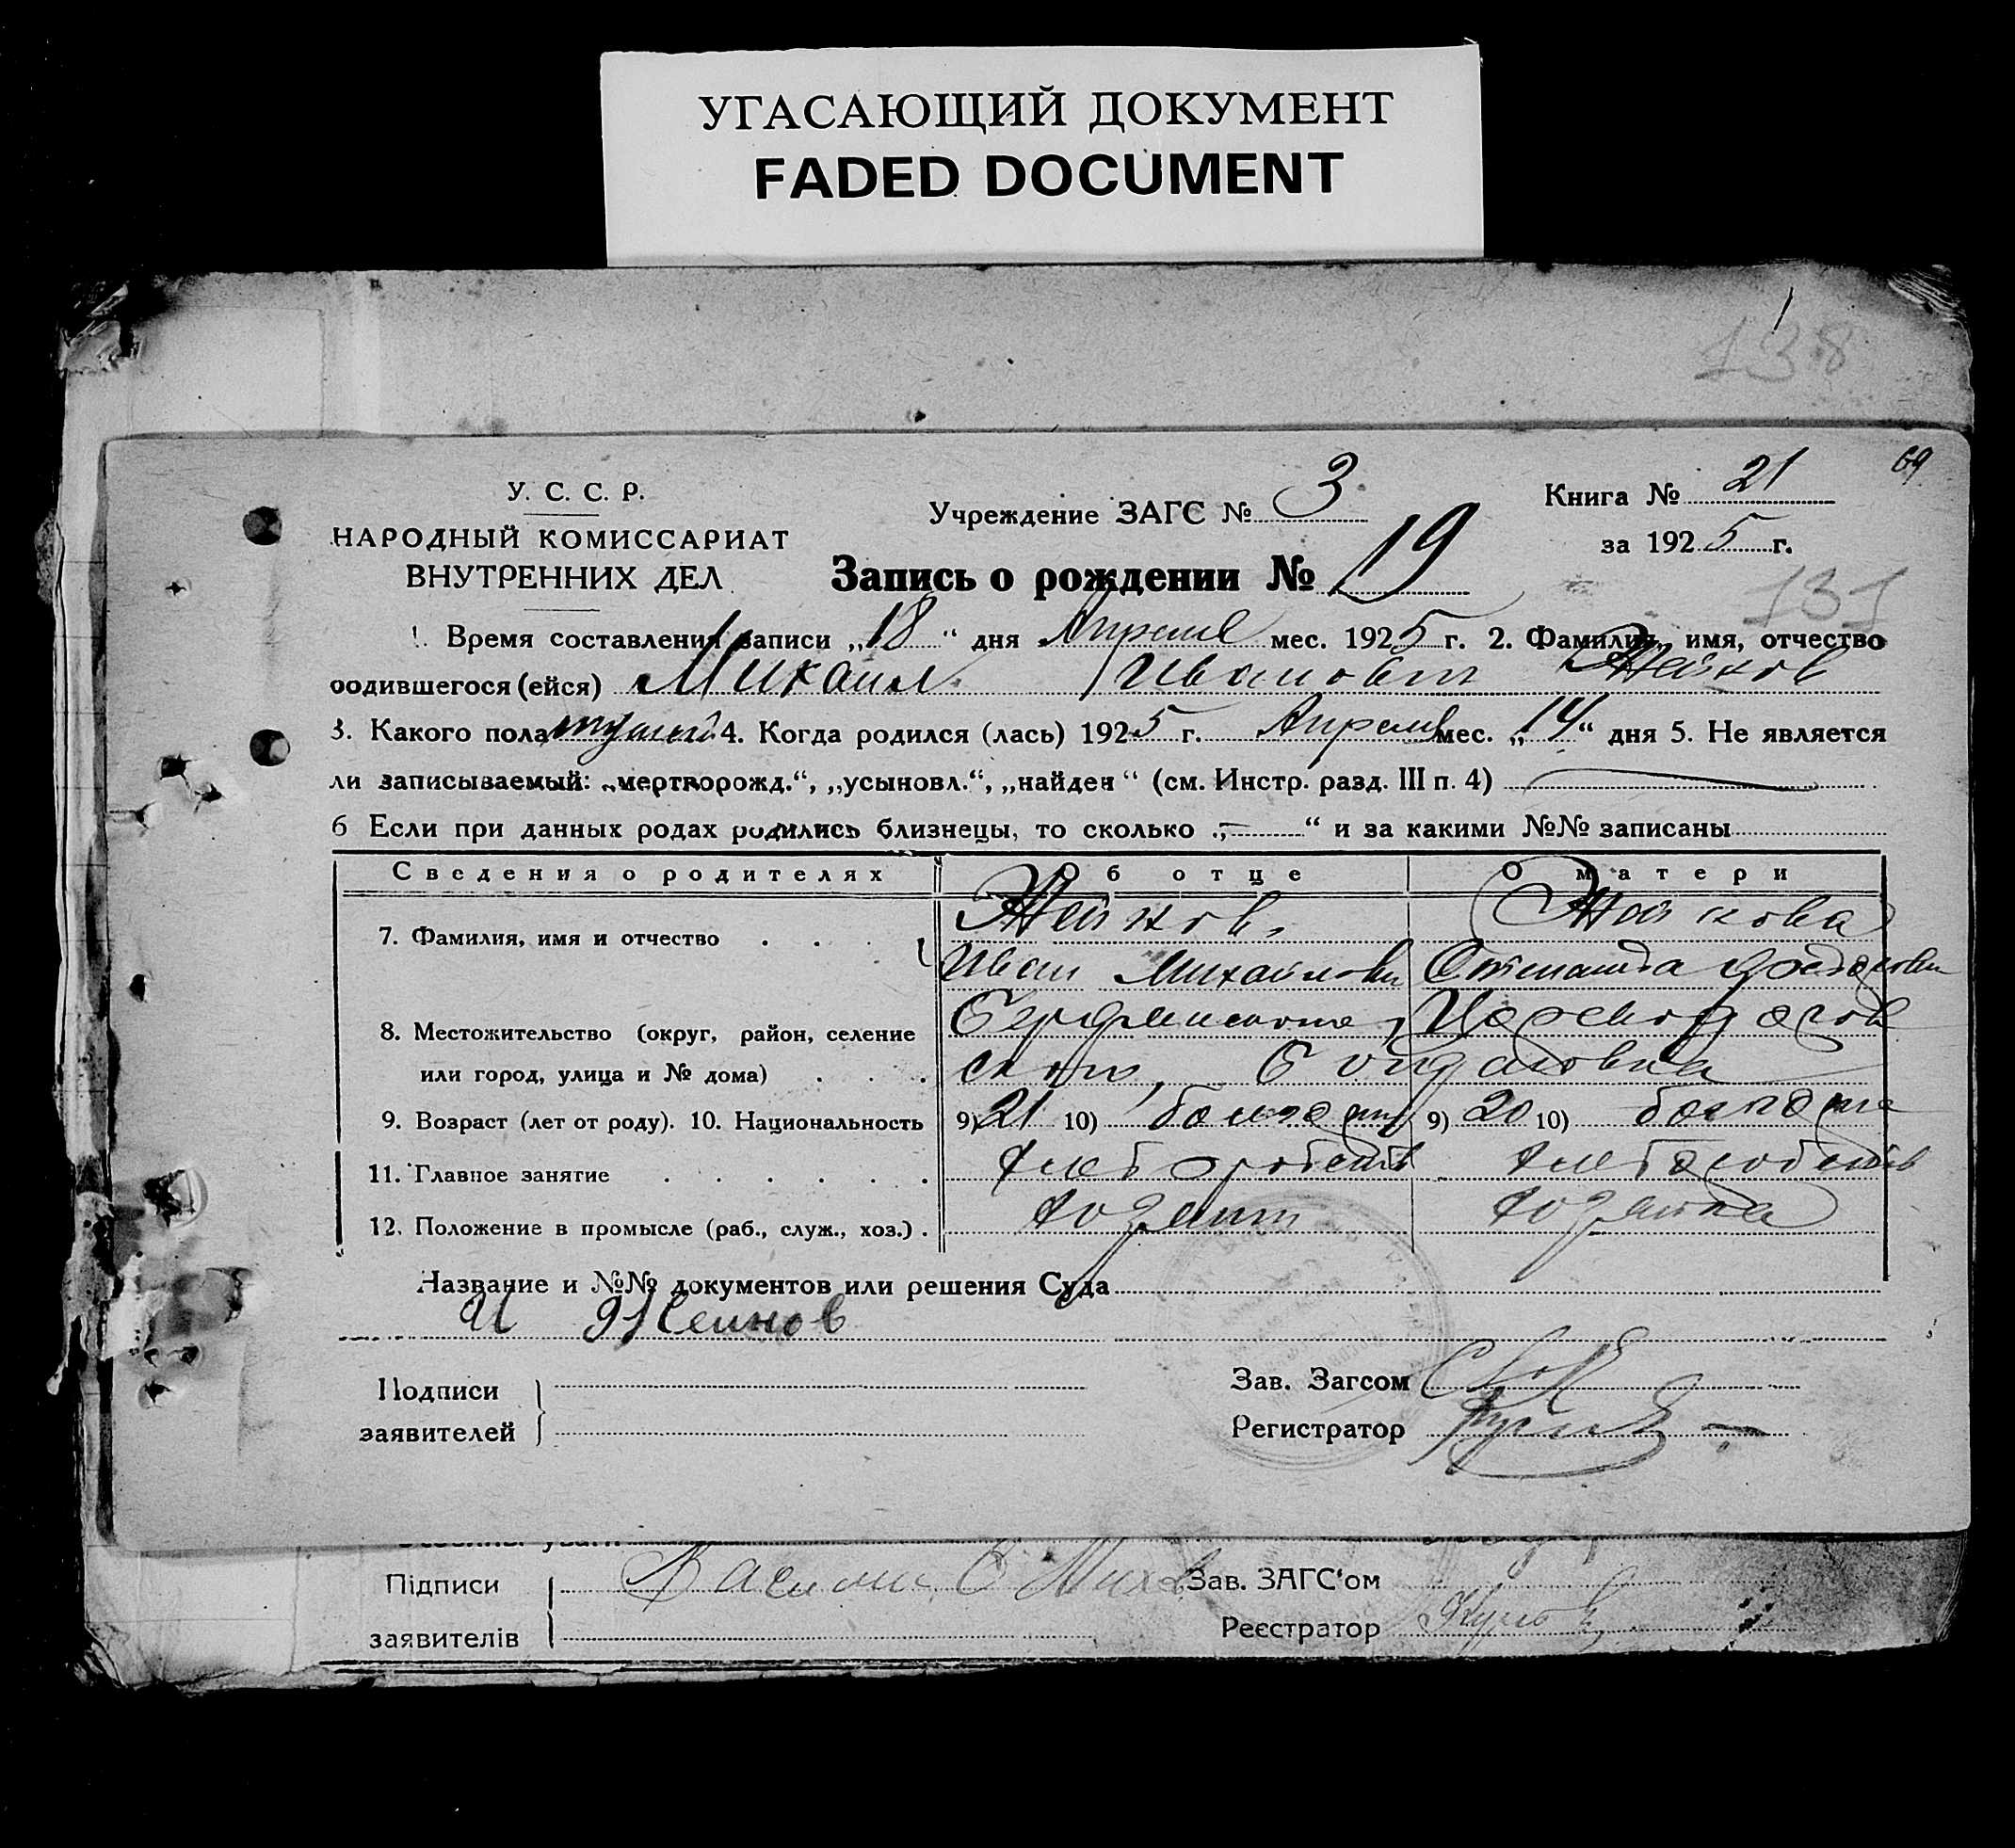 УГАСАЮЩИЙ ДОКУМЕНТ
FADED DOCUMENT
138
69
У. С. С. Р.
НАРОДНЫЙ КОМИССАРИАТ
ВНУТРЕННИХ ДЕЛ
Учреждение ЗАГС № 3
Книга № 21
за 1925 г.
Запись о рождении № 19
131
1. Время составления записи „18“ дня Апреля мес. 1925 г. 2. Фамилия, имя, отчество
родившегося (ейся) Михаил Иванович Жейнов
3. Какого пола 4. Когда родился (лась) 1925 г. Апреля мес. „14“ дня 5. Не является
ли записываемый: „мертворожд.“, „усыновл.“, „найден“ (см. Инстр. разд. III п. 4)
6 Если при данных родах родились близнецы, то сколько „—“ и за какими №№ записаны
Сведения о родителях Об отце О матери
Жейнов Жейнова
7. Фамилия, имя и отчество
Иван Михайлович
8. Местожительство (округ, район, селение
или город, улица и № дома)
9. Возраст (лет от роду). 10. Национальность 9) 21 10) 9) 20 10)
11. Главное занятие
12. Положение в промысле (раб., служ., хоз.) хозяин хозяйка
Название и №№ документов или решения Суда
И Жеинов
Подписи
заявителей
Зав. Загсом
Регистратор
Підписи
заявителів
Зав. ЗАГС'ом
Реєстратор